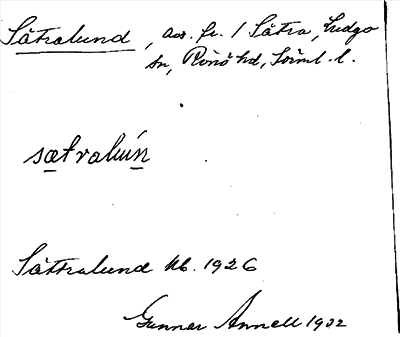 Såtralund, avs. fr. 1 Såtra, Ludgo
sn, Rönö hd, Söiml. l.
sætralun
Såtralund Kb. 1926
Gunnar Annell 1932